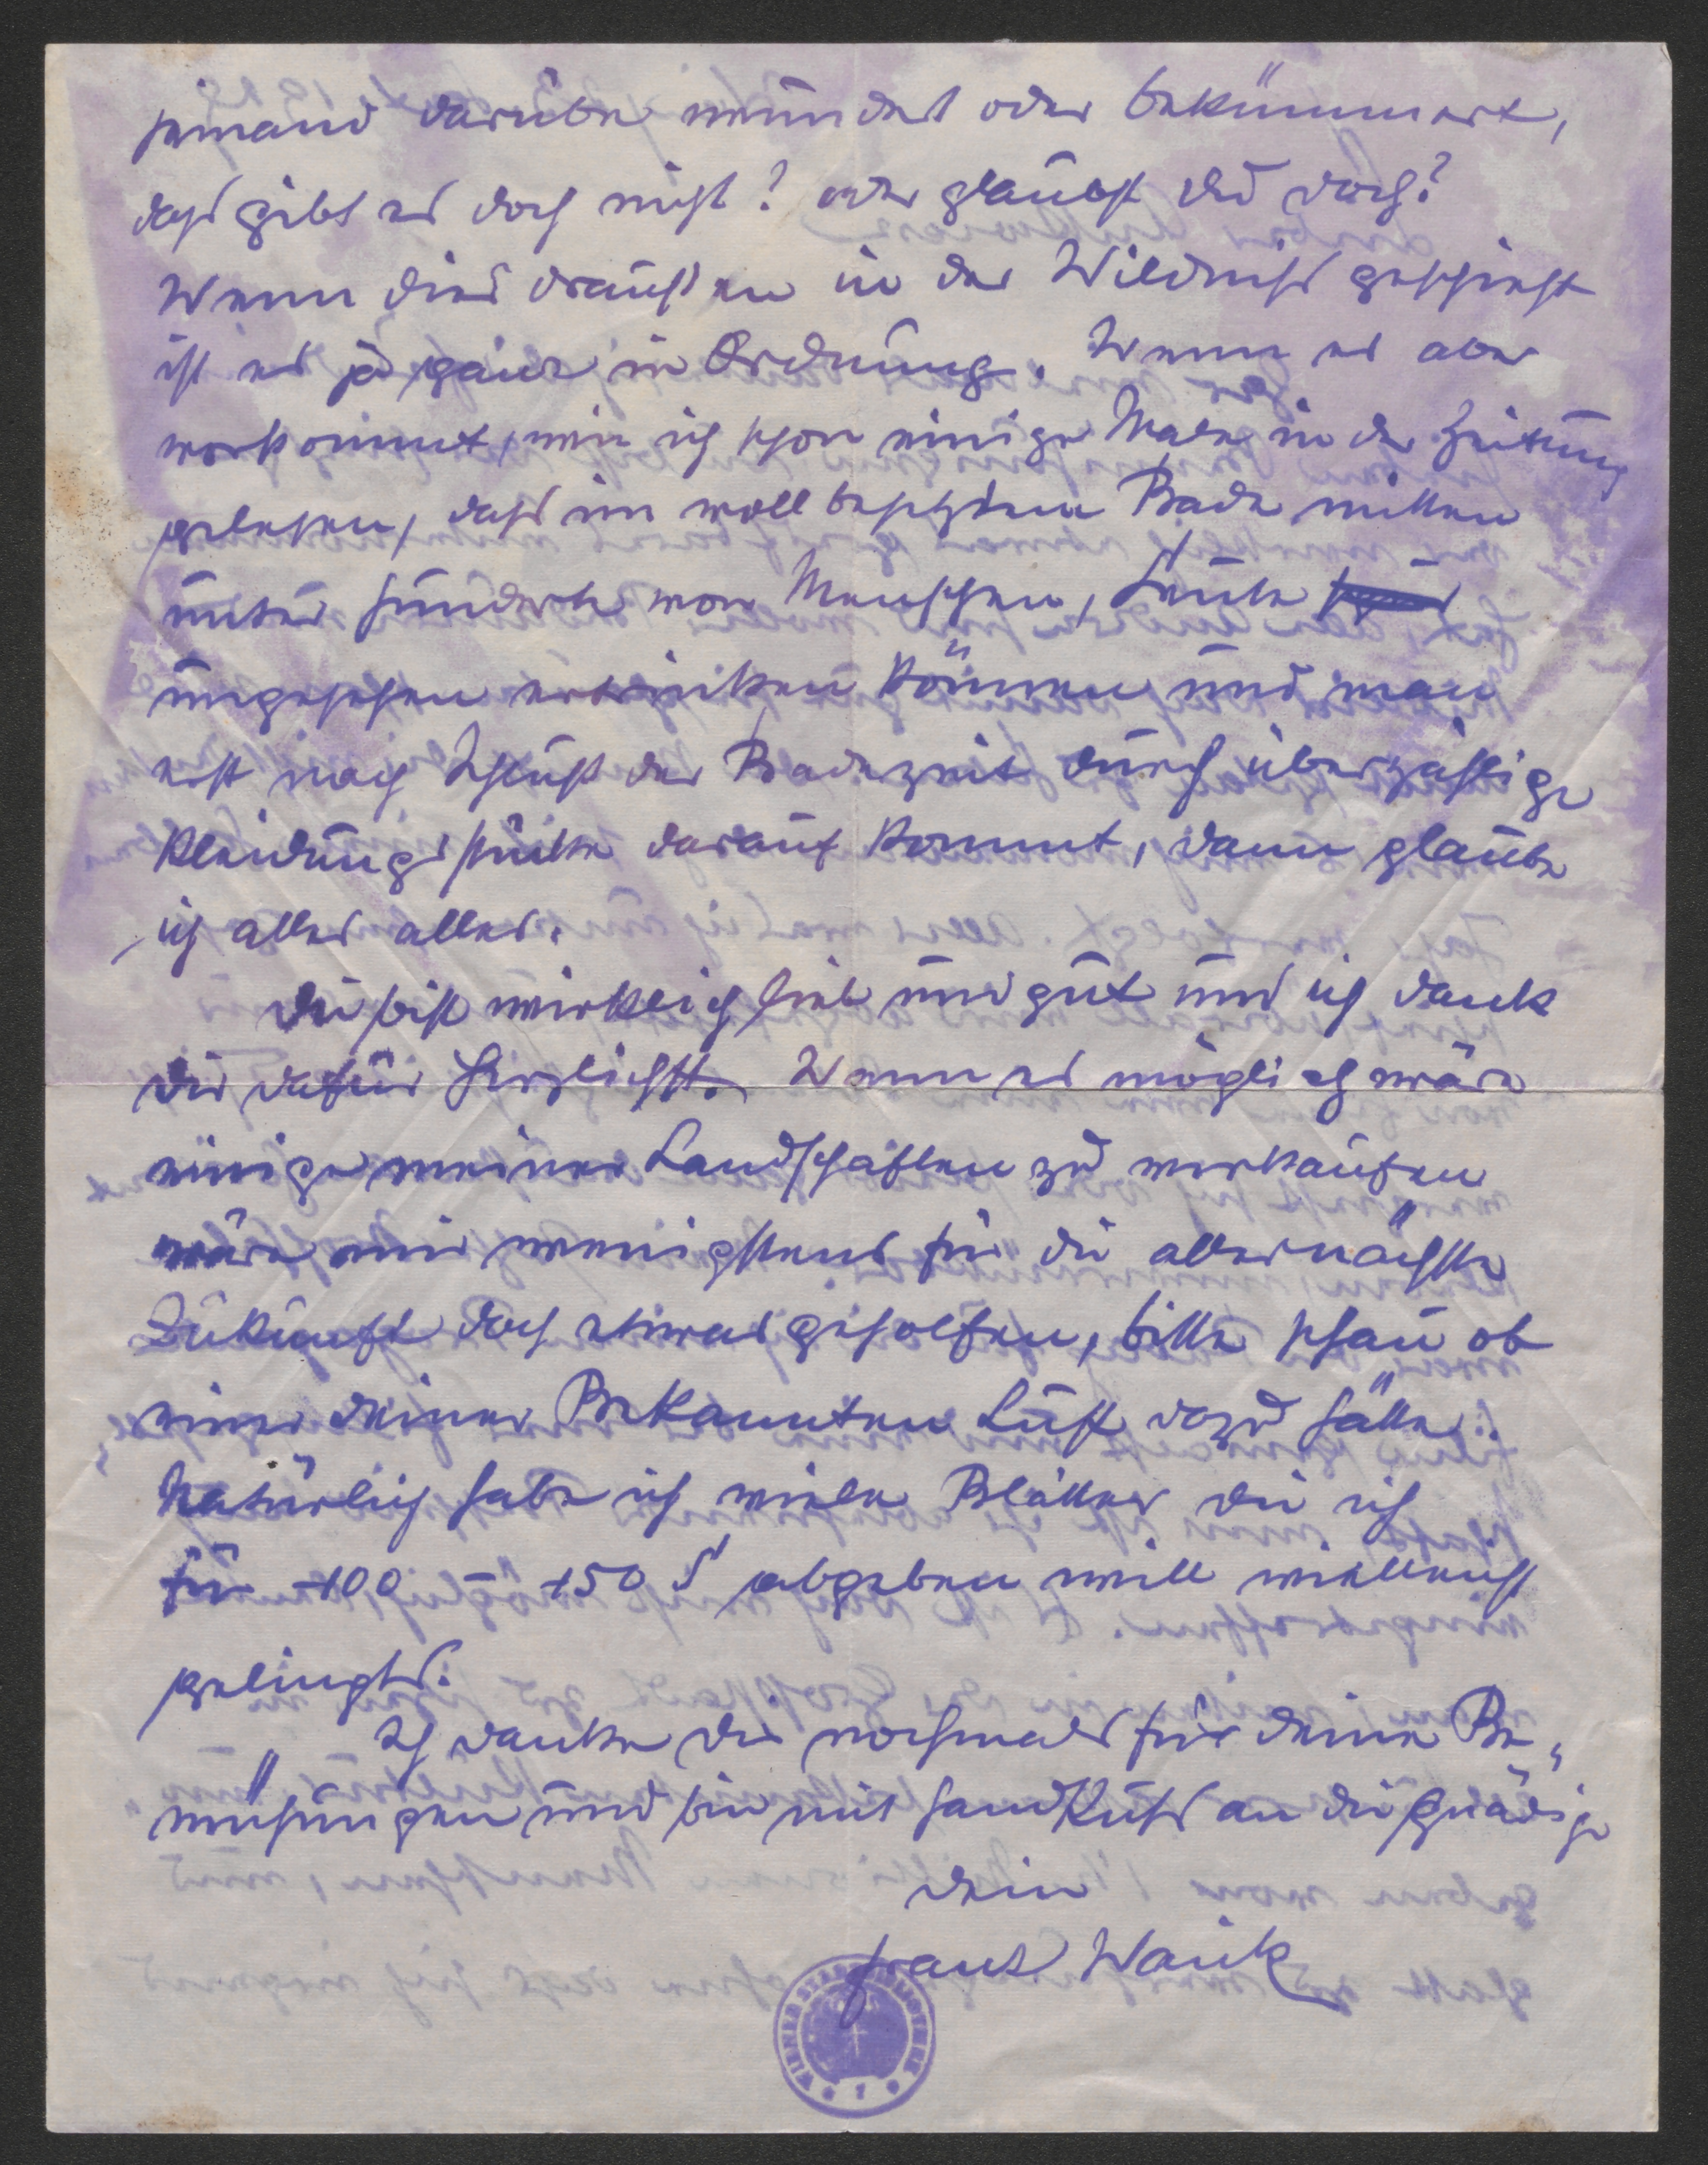 jemand darüber wundert oder bekümmert,
dass gibt es doch nicht? oder glaubst du doch?
Wenn dies draussen in der Wildniss geschieht
ist es ja ganz in Ordnung. Wenn es aber
vorkommt, wie ich schon einige Male in der Zeitung
gelesen, dass im voll besetzten Bade mitten
unter hunderte von Menschen, Leute
ungesehen ertrinken können und man
erst nach Schluß der Badezeit durch überzählige
Kleidungsstücke darauf kommt, dann glaube
ich alles alles.
Du bist wirklich lieb und gut und ich dank
dir dafür herzlichst. Wenn es möglich wäre
einige meiner Landschaften zu verkaufen
wäre mir wenigstens für die allernächste
Zukunft doch etwas geholfen, bitte schau ob
einer deiner Bekannten Lust dazu hätte.
Natürlich habe ich viele Blätter die ich
für 100 – 150 S abgeben will vielleicht
gelingts.
Ich danke dir nochmals für deine Be„
mühungen und bin mit Handkuß an die Gnädige
dein
Franz Wacik
WIENER STADTBIBLIOTHEK
1